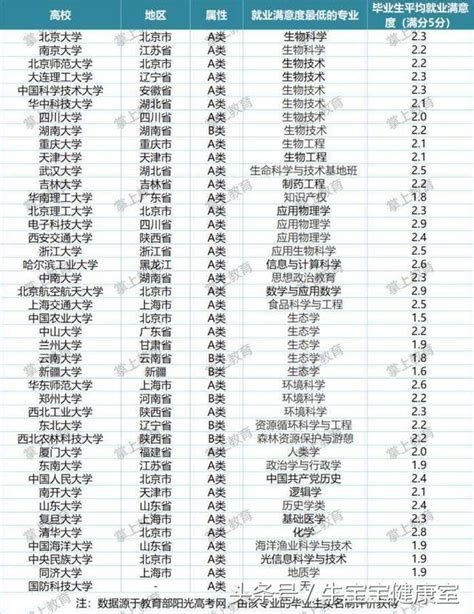 高校 地区 属性 就业满意度最低的专业 毕业生平均就业满意度(满分5分)
北京大学 北京市 A类 生物科学 2.3
南京大学 江苏省 A类 生物科学 2.2
北京师范大学 北京市 A类 生物技术 2.3
大连理工大学 辽宁省 A类 生物技术 2.3
中国科学技术大学 安徽省 A类 生物技术 2.3
华中科技大学 湖北省 A类 生物技术 2.1
四川大学 四川省 A类 生物技术 2.0
湖南大学 湖南省 B类 生物技术 2.2
重庆大学 重庆市 A类 生物工程 2.1
天津大学 天津市 A类 生物工程 2.1
武汉大学 湖北省 A类 生命科学与技术基地班 2.5
吉林大学 吉林省 A类 制药工程 2.2
华南理工大学 广东省 A类 知识产权 1.8
北京理工大学 北京市 A类 应用物理学 2.3
电子科技大学 四川省 A类 应用物理学 2.9
西安交通大学 陕西省 A类 应用物理学 2.4
浙江大学 浙江省 A类 应用生物科学 2.5
哈尔滨工业大学 黑龙江 A类 信息与计算科学 2.6
中南大学 湖南省 A类 思想政治教育 2.3
北京航空航天大学 北京市 A类 数学与应用数学 2.9
上海交通大学 上海市 A类 食品科学与工程 2.5
中国农业大学 北京市 A类 生态学 1.5
中山大学 广东省 A类 生态学 2.2
兰州大学 甘肃省 A类 生态学 1.9
云南大学 云南省 B类 生态学 1.8
新疆大学 新疆 B类 生态学 1.6
华东师范大学 上海市 A类 环境科学 2.6
郑州大学 河南省 B类 环境科学 2.2
西北工业大学 陕西省 A类 环境科学 2.3
东北大学 辽宁省 B类 资源循环科学与工程 2.2
西北农林科技大学 陕西省 B类 森林资源保护与游憩 2.2
厦门大学 福建省 A类 人类学 2.0
东南大学 江苏省 A类 政治学与行政学 1.9
中国人民大学 北京市 A类 中国共产党历史 2.4
南开大学 天津市 A类 逻辑学 2.1
山东大学 山东省 A类 历史学类 2.4
复旦大学 上海市 A类 基础医学 2.3
清华大学 北京市 A类 化学 2.8
中国海洋大学 山东省 A类 海洋渔业科学与技术 1.9
中央民族大学 北京市 A类 光信息科学与技术 1.9
同济大学 上海市 A类 地质学 1.9
国防科技大学 A类
注：数据源于教育部阳光高考网，由该专业的毕业生实名制评价获得
掌上教育
头条号/生宝宝健康室